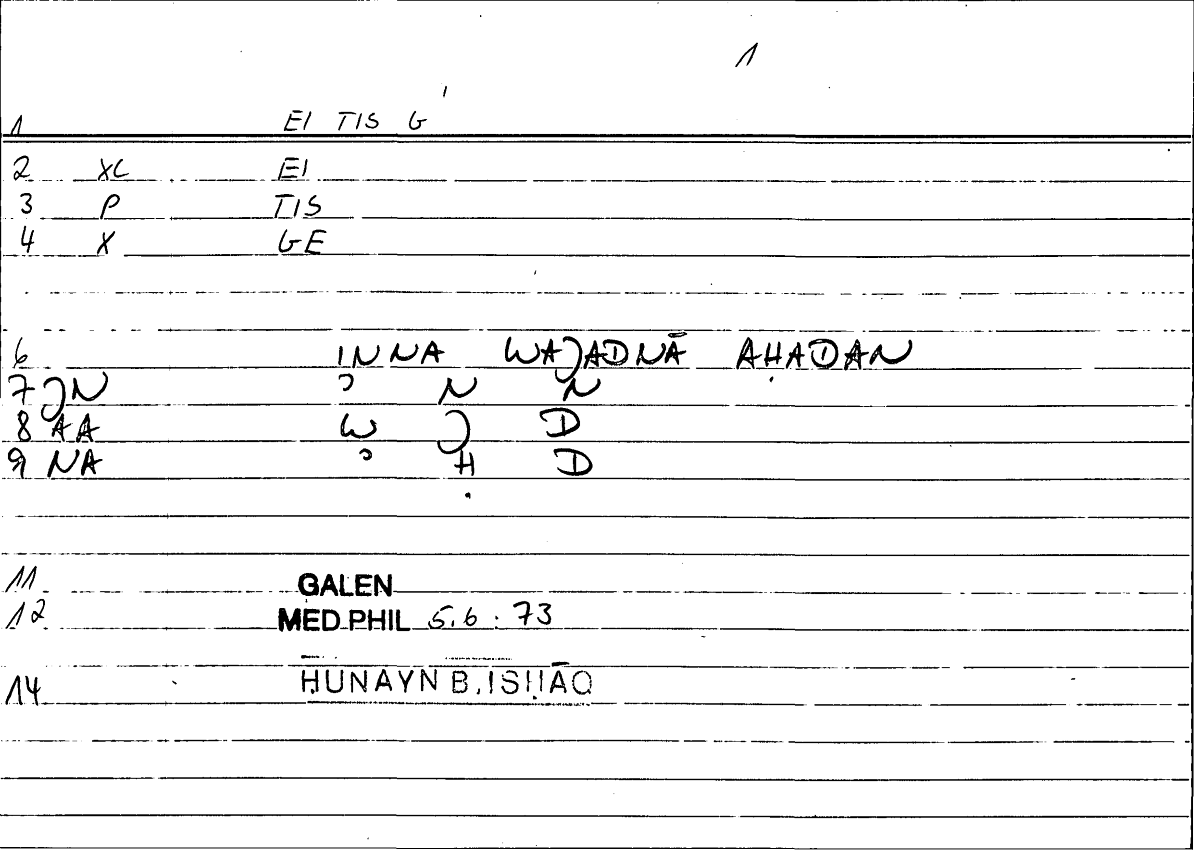 1
1 EI TIS G'
2 XC EI
3 P TIS
4 X GE
6 INNA WAJADNĀ AḤADAN
7 JN ʾ N N
8 AA W J D
9 NA ʾ Ḥ D
11 GALEN
12 MED PHIL 5,6 : 73
14 ḤUNAYN B. ISḤĀQ